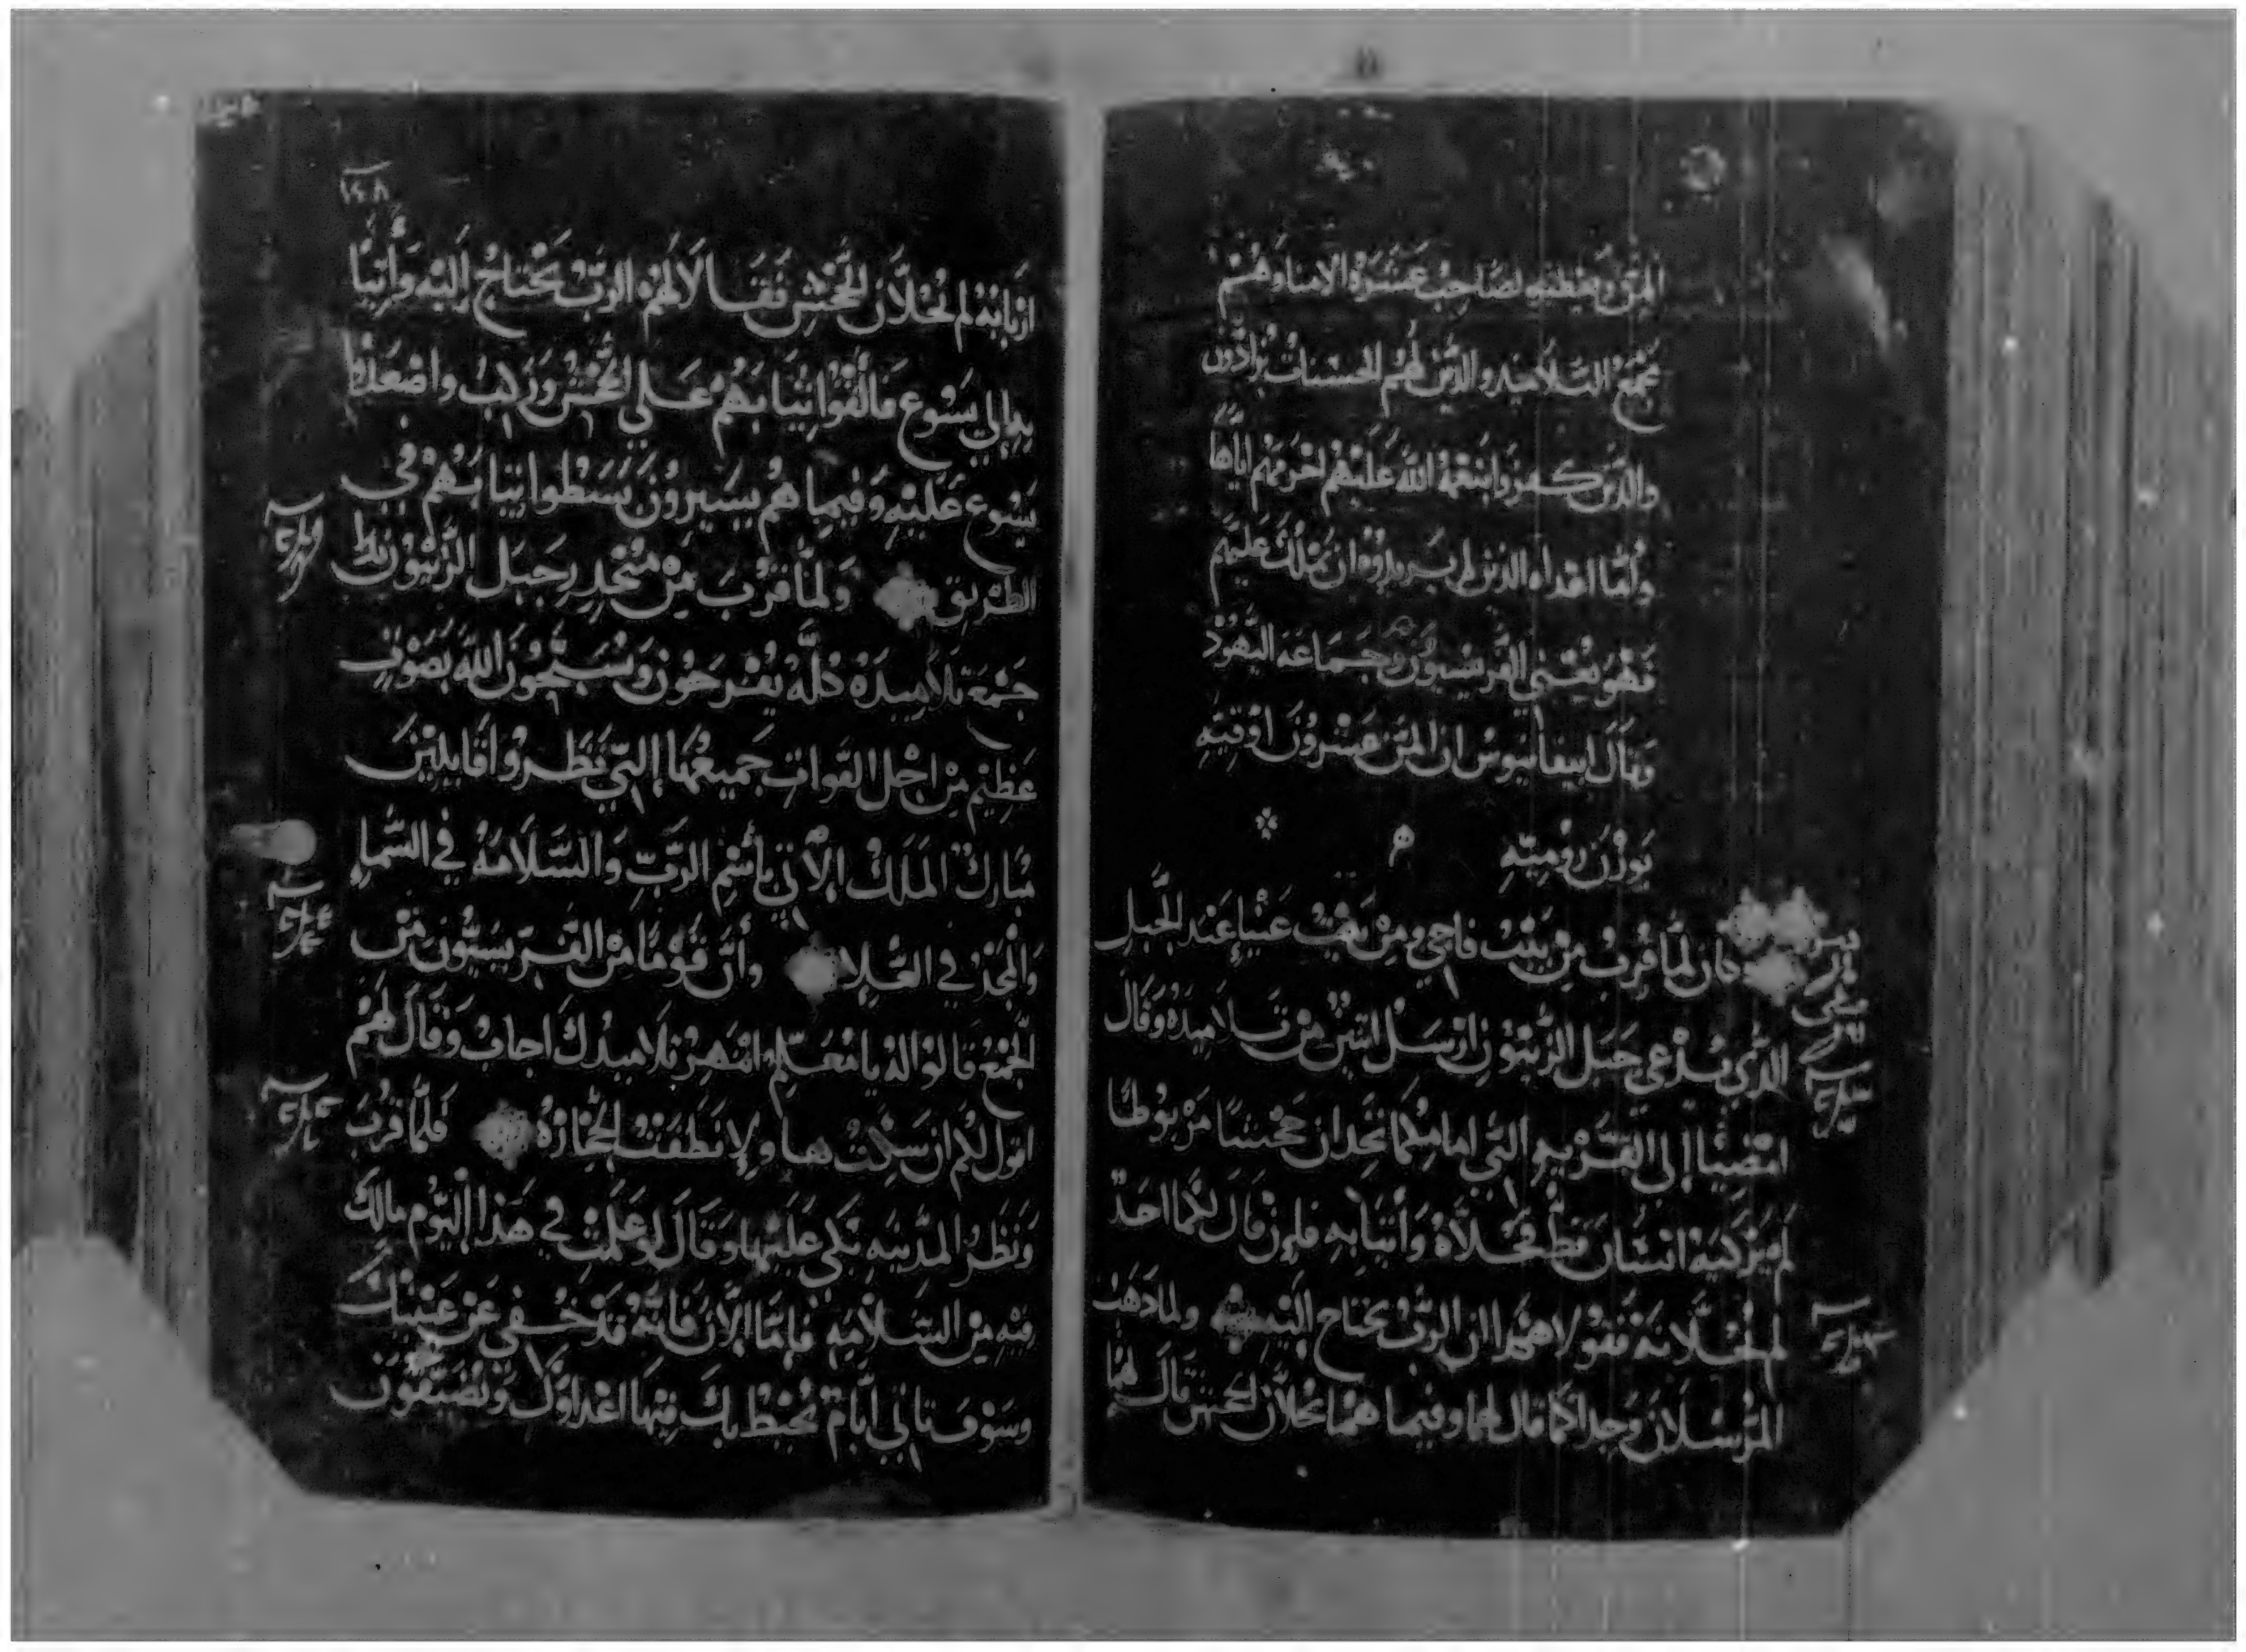 المَنّ يعطيه لصاحب عشرة الامنا وَهُم
مجمع التلاميد والدين لهُم الحسنات يزادون
والدين كفروا بنعمة الله عليهم اخرمهم اياها
وأمّا اعداه الدين لم يريدوه ان يملك عليهم
فهو يعني الفريسيون وجماعة اليهود
وقال ابيفانيوس ان المن عشرون اوقيه
بوزن روميّه
وكان لمّا قرب من بيت فاجي ومن بيت عنيا عند الجبل
الدّي يدعي جبل الزيتون ارسل اتنين من تلاميده وقال
امضيا إلى القريه التي امامكما تجدان جحشا مربوطا
لم يركبه انسان قط فحلاّه وأتيا به فان قال لكما احد
لم تحلانه فقولا هكدا ان الرب يحتاج اليه ولما دهب
المرسلان وجدا كما قال لهما وفيما هما يحلان الجحش قال لهما
١٤٨
اربابه لم تحلاّن الجحش فقالا لهم الربّ يحتاج إليه وأتيا
به إلى يسوع فالقوا تيابهم على الجحش وركب واصعدوا
يسوع عليه وفيما هم يسيرون بسطوا تيابهم في
الطريق ولمّا قرب من منحدر جبل الزيتون بدا
جمع تلاميده كلّه يفرحون ويسبّحون الله بصوت
عظيم من اجل القوات جميعها التي نظروا قايلين
مبارك الملك الآتي باسم الربّ والسّلامة في السّماء
والمجد في العُلا وأنّ قومًا من الفريسيّون من
الجمع قالوا له يا معلم انتهر تلاميدك اجاب وقال لهم
اقول لكم ان سكت هاولا نطقت الحجارة فلمّا قرب
ونظر المدينه بكى عليها وقال لو علمت في هدا اليوم مالك
فيه من السّلامة فامّا الآن فانّه قد خفي عن عينيك
وسوف تاتي ايّام تحيط بك فيها اعداوك ويضيّقون